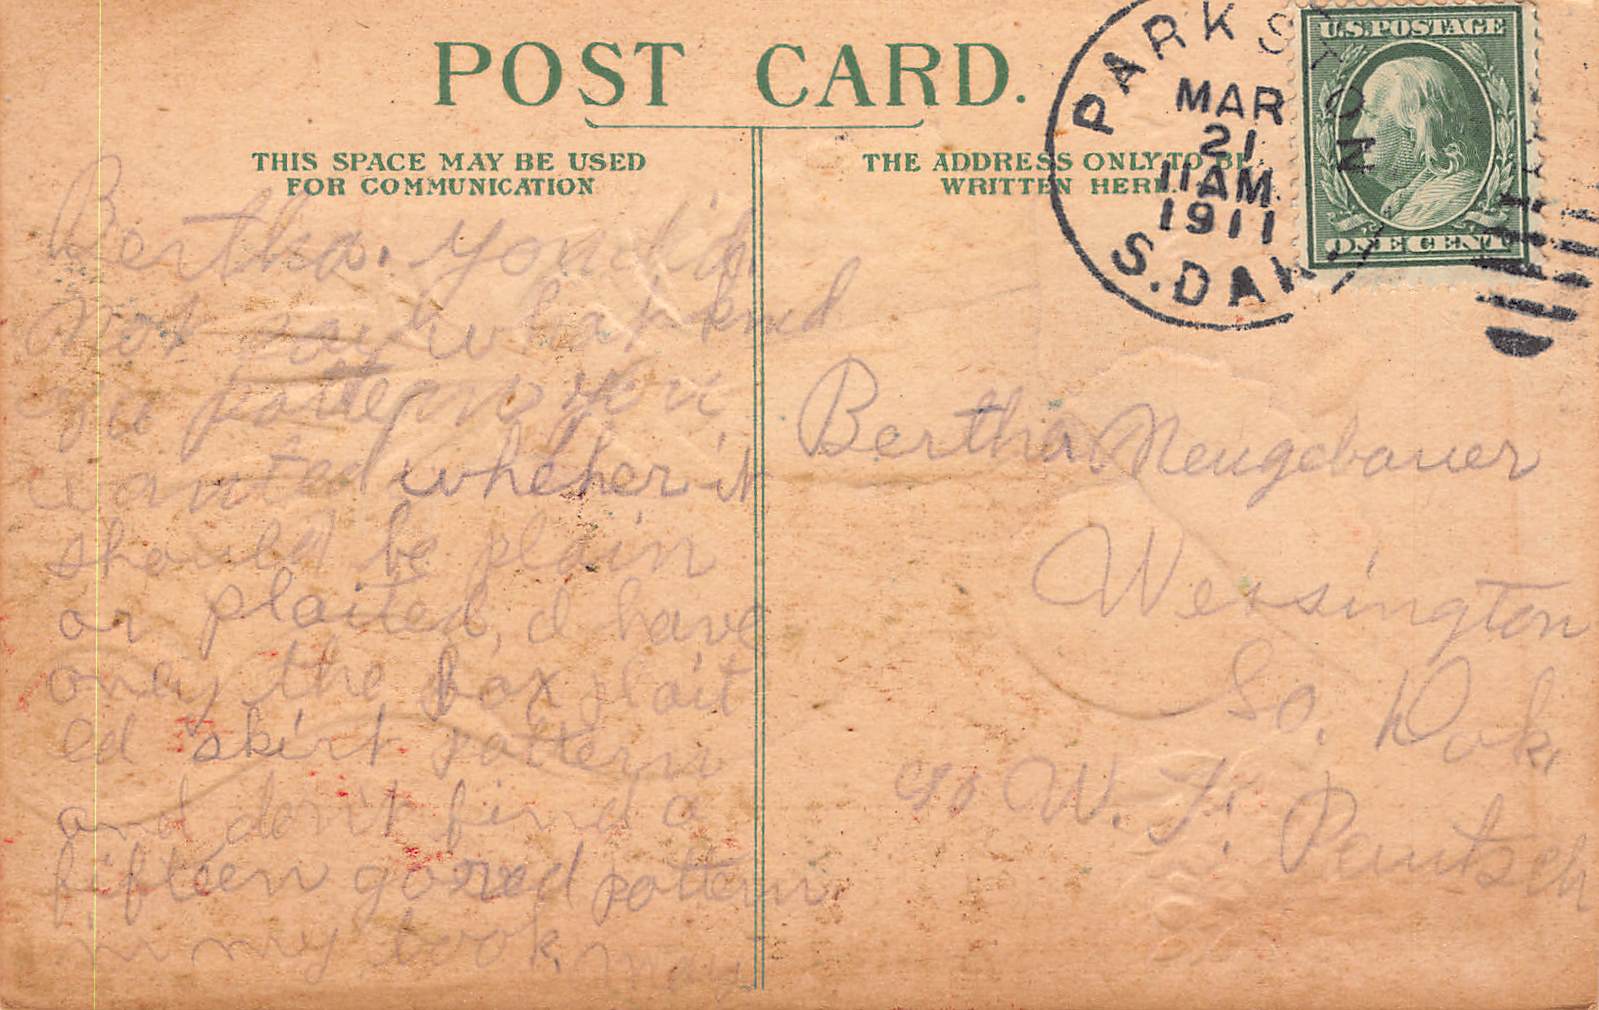 POST CARD.
THIS SPACE MAY BE USED
FOR COMMUNICATION
THE ADDRESS ONLY TO BE
WRITTEN HERE.
PARKSTON
MAR
21
11 AM
1911
S. DAK.
U.S. POSTAGE
ONE CENT
Bertha. you did
not say what kind
pattern you
wanted wheher it
should be plain
or plaited, I have
only the box plait
ed skirt pattern
and don't find a
fifteen gored pattern
in my book. May
Bertha Neugebauer
Wessington
So. Dak.
c/o W. F. Pautsch